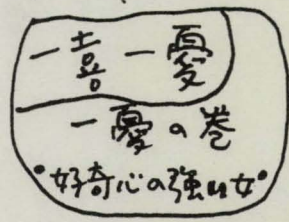 一喜一憂
一憂の巻
•好奇心の強い女•